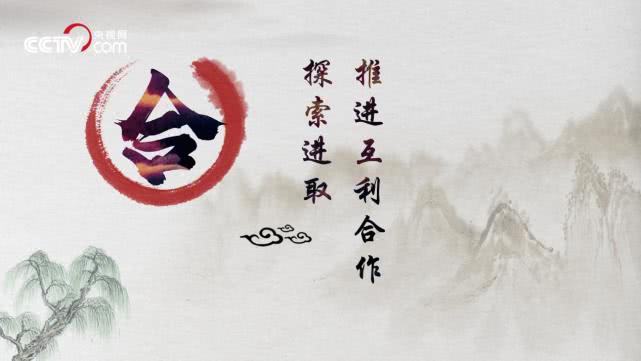 CCTV央视网.com
合
推进互利合作
探索进取